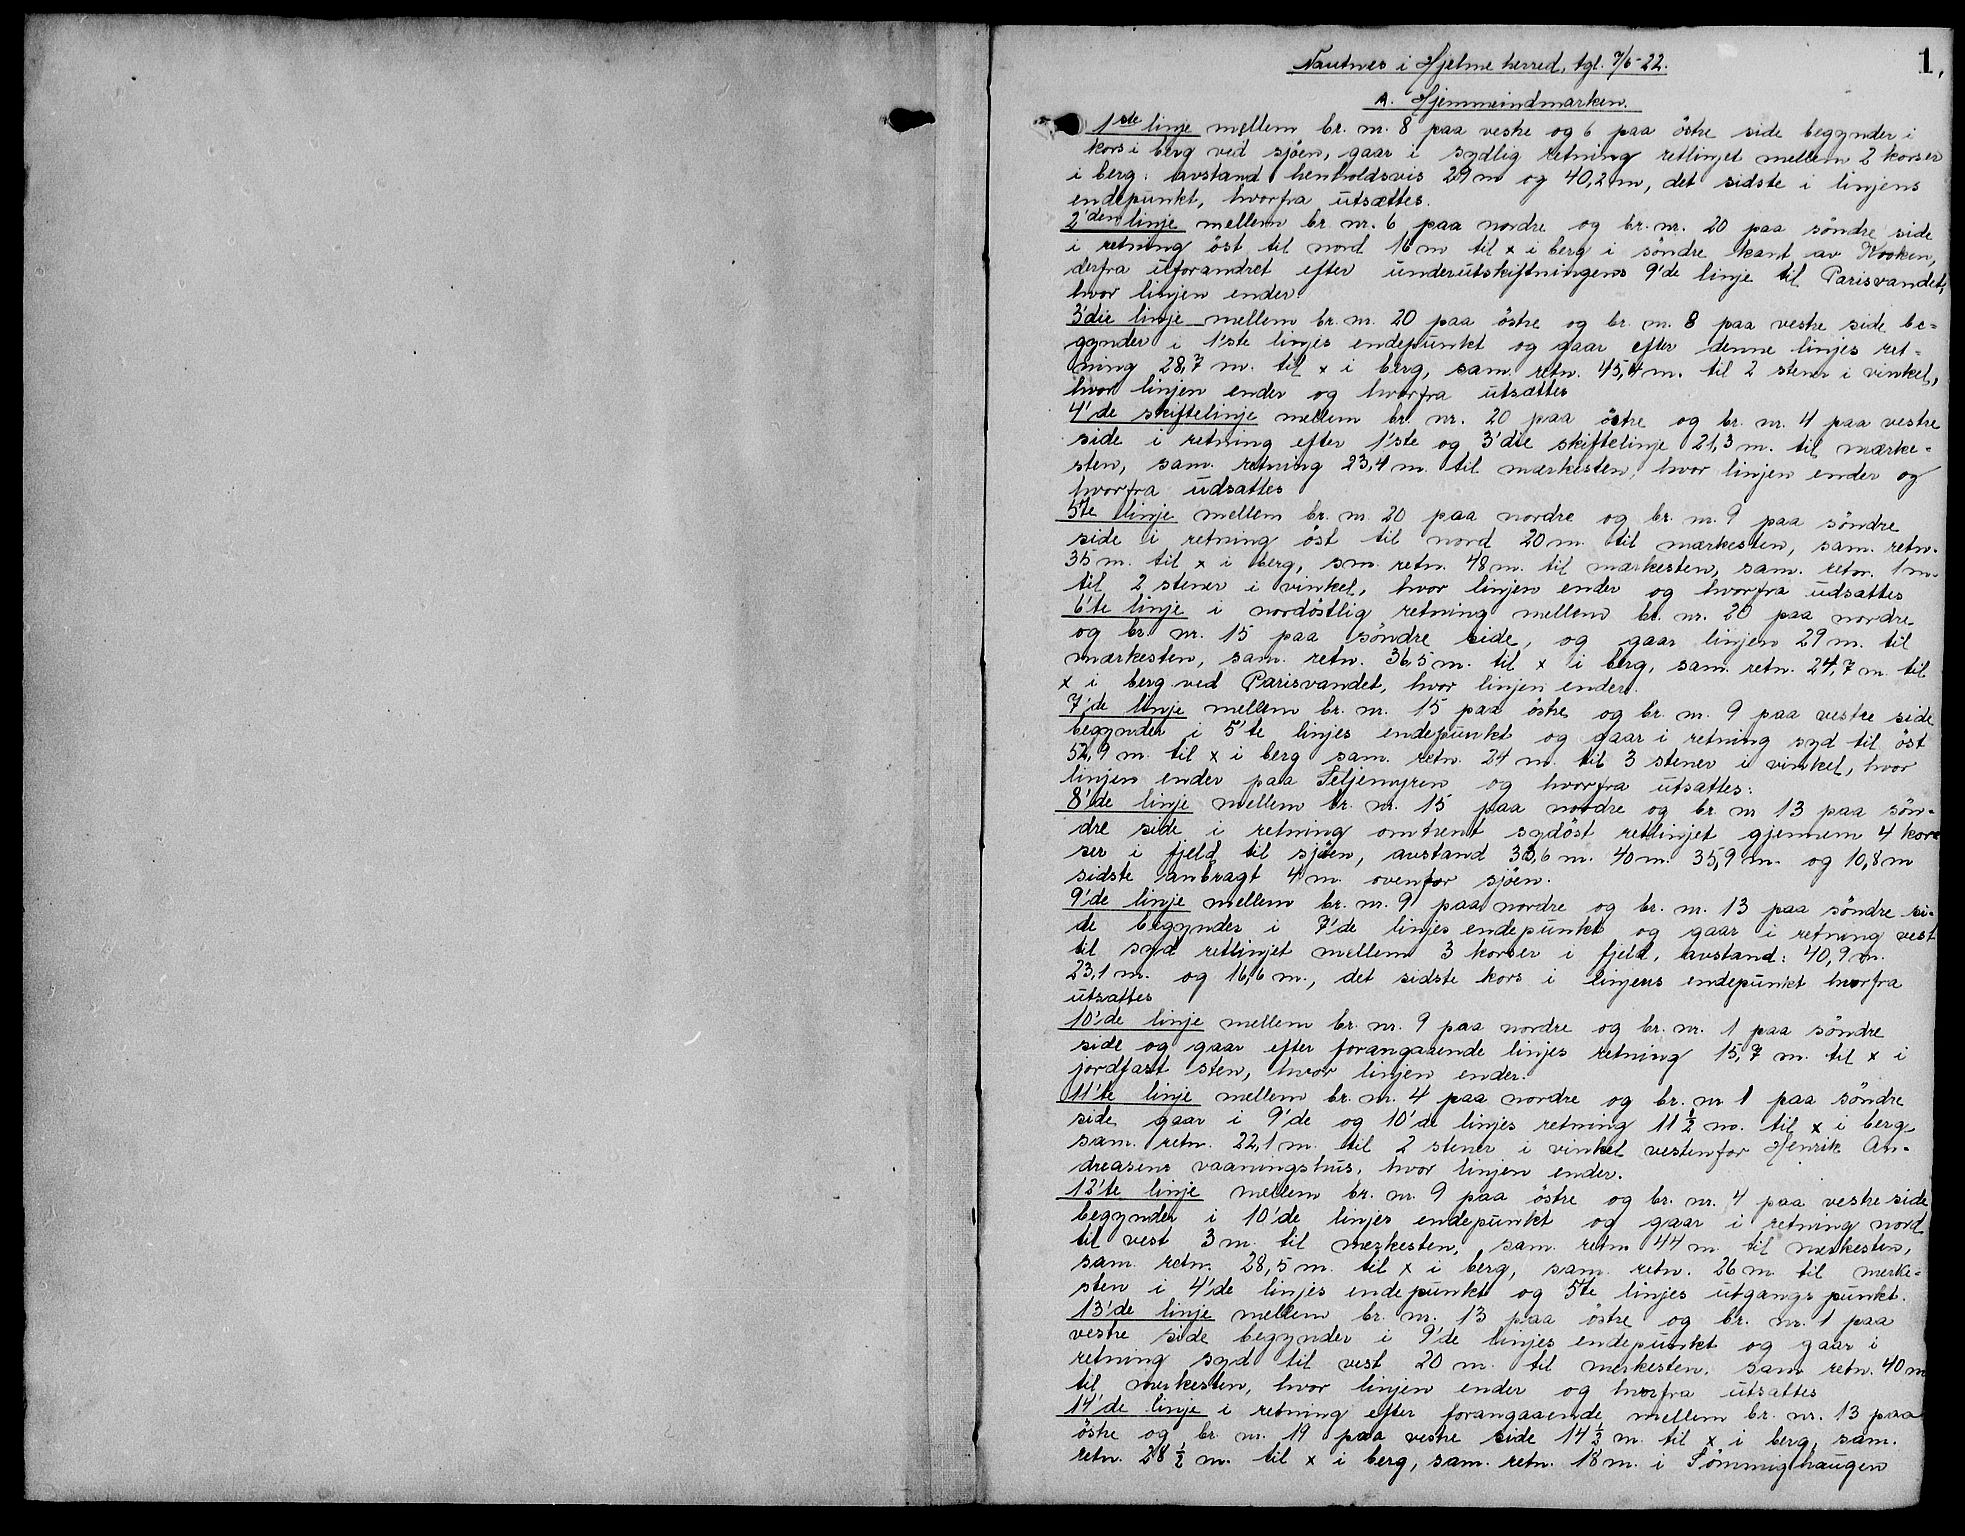 1.
Nautnes i Hjelme herred, tgl. 7/6-22.
A. Hjemmeindmarken.
1ste linje mellem br. nr. 8 paa vestre og 6 paa östre side begynder i
kors i berg ved sjöen, gaar i sydlig retning retlinjet mellem 2 korser
i berg: avstand henholdsvis 29 m og 40,2 m, det sidste i linjens
endepunkt, hvorfra utsættes.
2'den linje mellem br. nr. 6 paa nordre og br. nr. 20 paa söndre side
i retning öst til nord 16 m til x i berg i söndre kant av Kroken,
derfra uforandret efter underutskiftningens 9'de linje til Parisvandet,
hvor linjen ender.
3'die linje mellem br. nr. 20 paa östre og br. nr. 8 paa vestre side be-
gynder i 1'ste linjes endepunkt og gaar efter denne linjes ret-
ning 28,7 m. til x i berg, sam. retn. 45,4 m. til 2 stener i vinkel,
hvor linjen ender og hvorfra utsættes
4'de skiftelinje mellem br. nr. 20 paa östre og br. nr. 4 paa vestre
side i retning efter 1'ste og 3'die skiftelinje 21,3 m. til mærke-
sten, sam. retning 23,4 m. til mærkesten, hvor linjen ender og
hvorfra udsættes
5te linje mellem br. nr. 20 paa nordre og br. nr. 9 paa söndre
side i retning öst til nord 20 m. til mærkesten, sam. retn.
35 m. til x i berg, sm. retn. 48 m. til mærkesten, sam. retn. 1 m.
til 2 stener i vinkel, hvor linjen ender og hvorfra udsættes
6'te linje i nordöstlig retning mellem br. nr. 20 paa nordre
og br. nr. 15 paa söndre side, og gaar linjen 29 m. til
mærkesten, sam. retn. 36,5 m. til x i berg, sam. retn. 24,7 m. til
x i berg ved Parisvandet, hvor linjen ender.
7'de linje mellem br. nr. 15 paa östre og br. nr. 9 paa vestre side
begynder i 5'te linjes endepunkt og gaar i retning syd til öst
52,9 m. til x i berg sam. retn. 24 m. til 3 stener i vinkel, hvor
linjen ender paa Seljemyren og hvorfra utsættes:
8'de linje mellem br. nr. 15 paa nordre og br. nr 13 paa sön-
dre side i retning omtrent sydöst retlinjet gjennem 4 kor
ser i fjeld til sjöen, avstand 33,6 m. 40 m. 35,9 m. og 10,8 m
sidste anbragt 4 m. ovenfor sjöen.
9'de linje mellem br. nr. 9 paa nordre og br. nr. 13 paa söndre si-
de begynder i 7'de linjes endepunkt og gaar i retning vest
til syd retlinjet mellem 3 korser i fjeld, avstand: 40,9 m.
23,1 m. og 16,6 m., det sidste kors i linjens endepunkt hvorfra
utsættes
10'de linje mellem br. nr. 9 paa nordre og br. nr. 1 paa söndre
side og gaar efter forangaaende linjes retning 15,7 m. til x i
jordfast sten, hvor linjen ender.
11'te linje mellem br. nr. 4 paa nordre og br. nr 1 paa söndre
side gaar i 9'de og 10'de linjes retning 11 1/2 m. til x i berg
sam. retn. 22,1 m. til 2 stener i vinkel vestenfor Henrik An-
dreasens vaaningshus, hvor linjen ender.
12'te linje mellem br. nr. 9 paa östre og br. nr. 4 paa vestre side
begynder i 10'de linjes endepunkt og gaar i retning nord
til vest 3 m. til merkesten, sam. retn 44 m. til merkesten,
sam. retn. 28,5 m. til x i berg, sam. retn. 26 m til merke-
sten i 4'de linjes endepunkt og 5te linjes utgangspunkt.
13'de linje mellem br. nr. 13 paa östre og br. nr. 1 paa
vestre side begynder i 9'de linjes endepunkt og gaar i
retning syd til vest 20 m. til merkesten, sam. retn. 40 m
til merkesten, hvor linjen ender og hvorfra utsættes
14'de linje i retning efter forangaaende mellem br. nr. 13 paa
östre og br. nr. 19 paa vestre side 14 1/2 m. til x i berg, sam.
retn. 28 1/2 m. til x i berg, sam. retn. 18 m. i Sömmighaugen